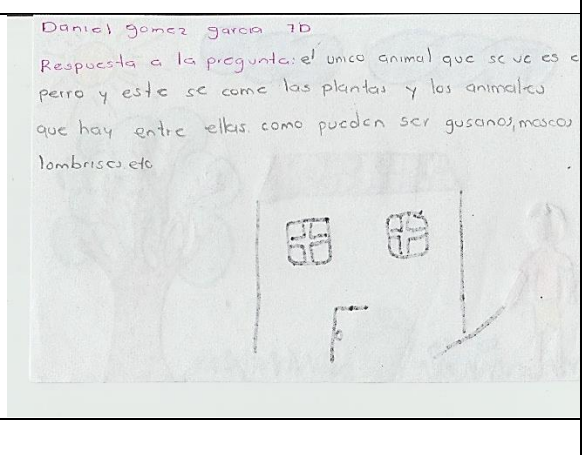 Daniel gomez garcia 7b
Respuesta a la pregunta: el unico animal que se ve es e
perro y este se come las plantas y los animales
que hay entre ellas como pueden ser gusanos, moscas
lombrises etc